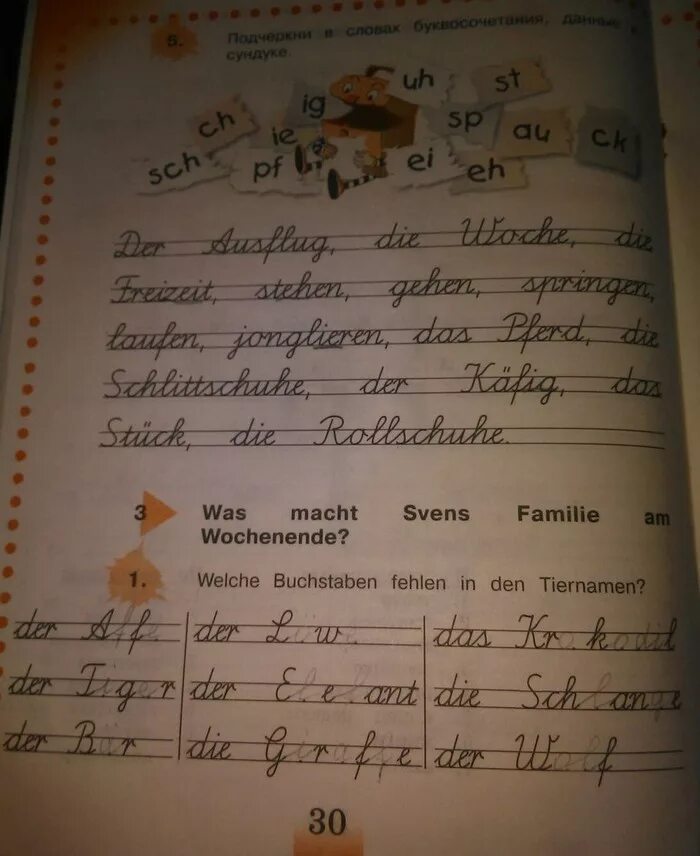 5. Подчеркни в словах буквосочетания, данные в
сундуке.
uh st
ig
ch sp au ck
ie
sch pf ei eh
Der Ausflug, die Woche, die
Freizeit, stehen, gehen, springen,
laufen, jonglieren, das Pferd, die
Schlittschuhe, der Käfig, das
Stück, die Rollschuhe.
3 Was macht Svens Familie am
Wochenende?
1. Welche Buchstaben fehlen in den Tiernamen?
der Affe der Löwe das Krokodil
der Tiger der Elefant die Schlange
der Bär die Giraffe der Wolf
30